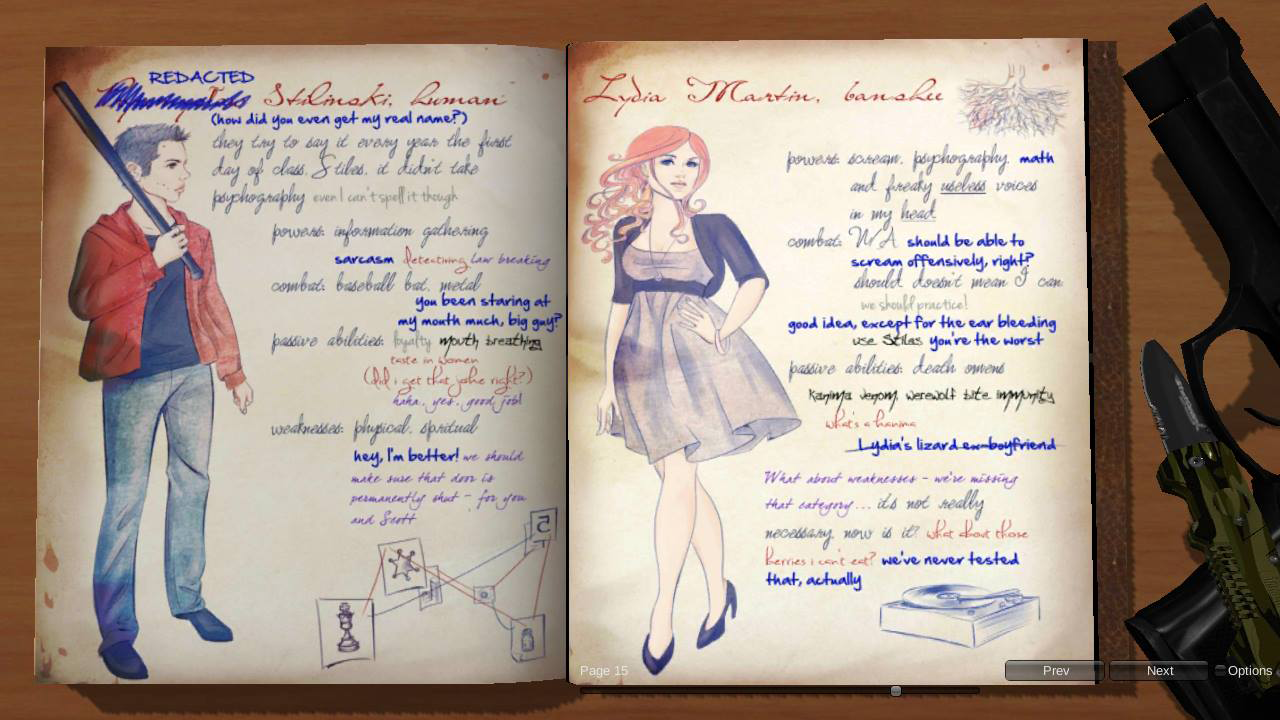 REDACTED
Stilinski, human
(how did you even get my real name?)
they try to say it every year the first
day of class. Stiles. it didn't take
psychography even I can't spell it though
powers: information gathering
sarcasm detectiving law breaking
combat: baseball bat. metal
you been staring at
my mouth much, big guy?
passive abilities: loyalty mouth breathing
taste in women
(did i get that joke right?)
haha.. yes.. good job!
weaknesses: physical. spritual
hey, I'm better! we should
make sure that door is
permanently shut - for you
and Scott
5
Lydia Martin, banshee
powers: scream. psychography. math
and freaky useless voices
in my head
combat: N/A should be able to
scream offensively, right?
should doesn't mean I can
we should practice!
good idea, except for the ear bleeding
use Stiles you're the worst
passive abilities: death omens
kanima venom, werewolf bite immunity
what's a kanima
Lydia's lizard ex-boyfriend
What about weaknesses - we're missing
that category... it's not really
necessary now is it? what about those
berries i can't eat? we've never tested
that, actually
Page 15
Prev
Next
Options